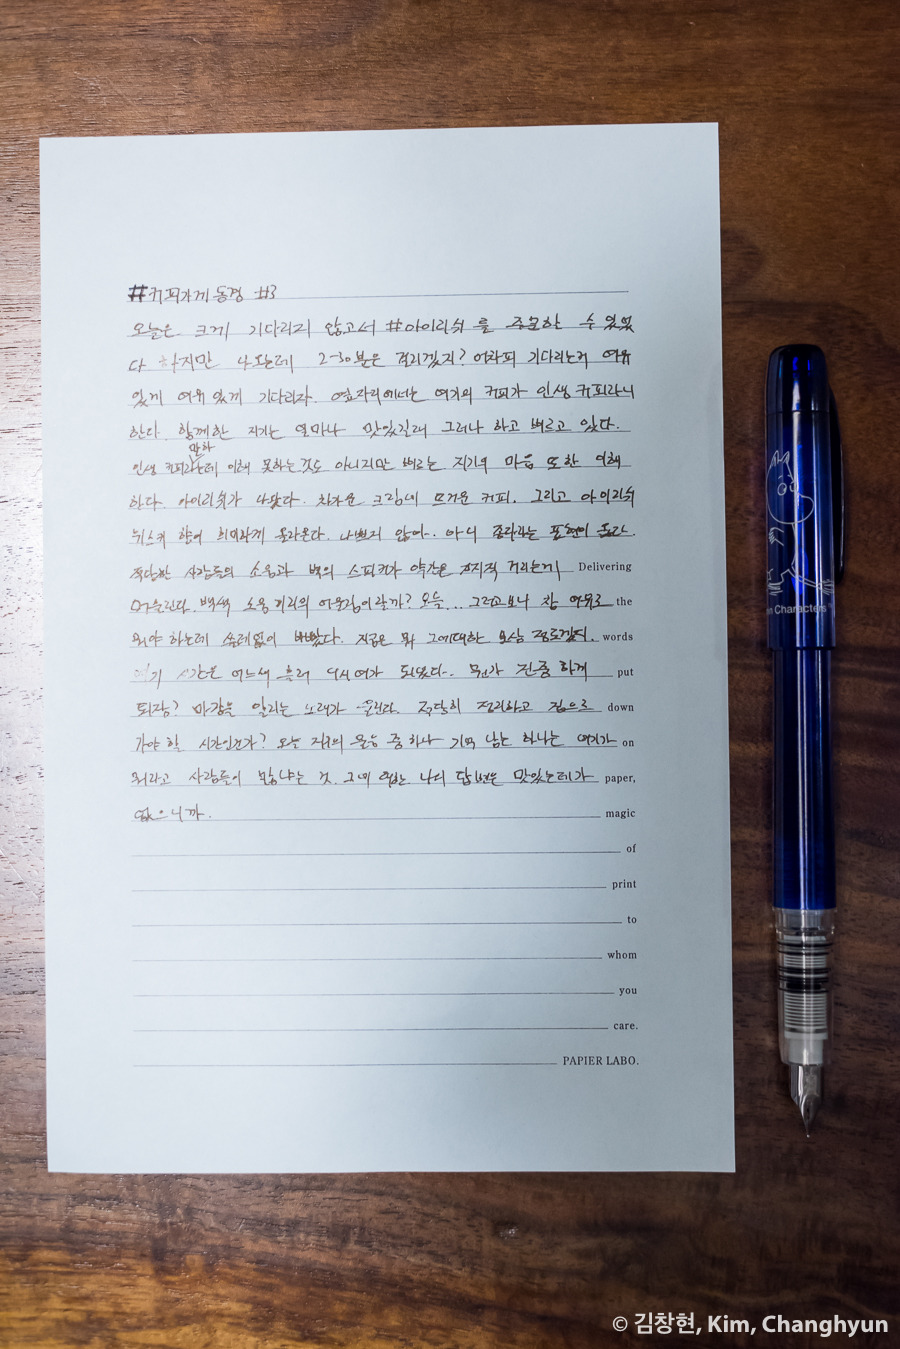 #커피가게 동경 #3
오늘은 크게 기다리지 않고서 #아이리쉬 를 주문할 수 있었
다 하지만 나오는데 2~30분은 걸리겠지? 어차피 기다리는거 여유
있게 여유 있게 기다리자. 옆자리에서는 여기의 커피가 인생 커피라니
한다. 함께한 자기는 얼마나 맛있길래 그러나 하고 벼르고 있다.
말하
인생 커피라는데 이해 못하는 것도 아니지만 벼르는 자기의 마음 또한 이해
하다. 아이리쉬가 나왔다. 차가운 크림에 뜨거운 커피. 그리고 아이리쉬
위스키 향이 희미하게 올라온다. 나쁘지 않아. 아니 좋다라는 표현이 옳다.
적당한 사람들의 소음과 벽의 스피커가 약간은 지지직 거리는게 Delivering
어울린다. 백색 소음 거리의 어울림이랄까? 오늘... 그러고보니 참 아무로 the
뭐야 하는데 쓸데없이 바빴다. 지금은 뭐 그에대한 보상 정도겠지. words
여기 시간은 어느새 흘러 다시여가 되었다. 뭔가 진중하게 put
퇴장? 마감을 알리는 노래가 들린다. 적당히 정리하고 집으로 down
가야 할 시간인가? 오늘 저의 물음 중 하나 기억 남는 하나는 여기가 on
뭐라고 사람들이 많냐는 것. 그에 대한 나의 답변은 맛있는데가 paper,
없으니까. magic
of
print
to
whom
you
care.
PAPIER LABO.
Characters
© 김창현, Kim, Changhyun